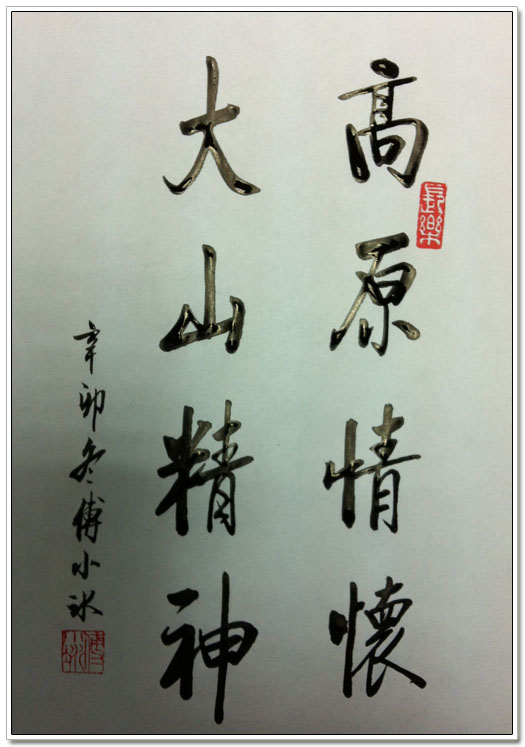 高原情懷
長樂
大山精神
辛卯冬傅小冰